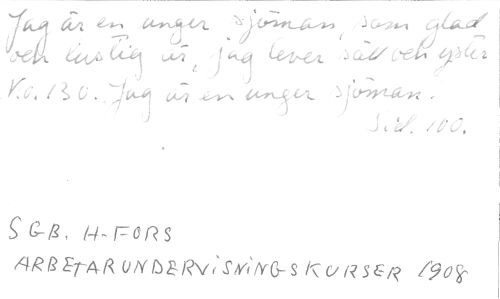 Jag är en unger sjöman, som glad
och lustig är, jag lever säll och yster
V.o. 130. Jag är en unger sjöman.
Sid. 100.
SGB. H-FORS
ARBETARUNDERVISNINGSKURSER 1908